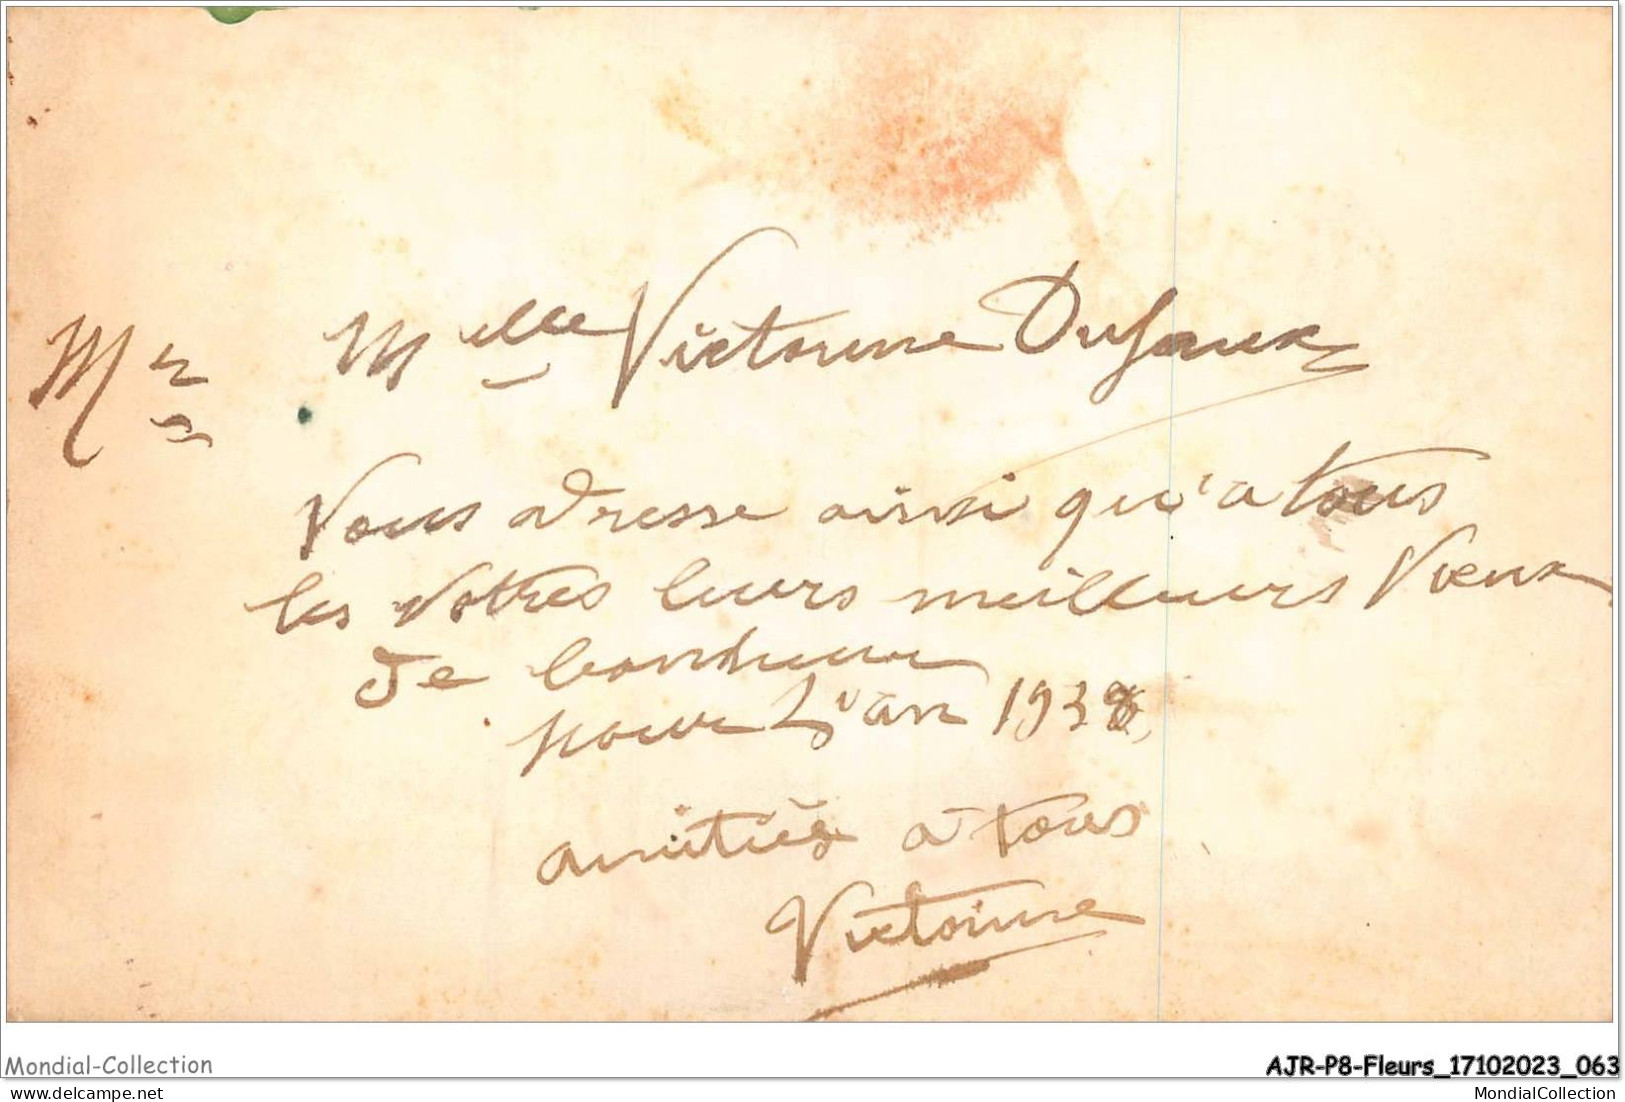 Mr Melle Victorine Dufaux
Vous adresse ainsi qu'a tous
les votres leurs meilleurs Vœux
de bonheur
pour L'an 1938
amitiés à tous
Victorine
Mondial-Collection
AJR-P8-Fleurs_17102023_063
MondialCollection